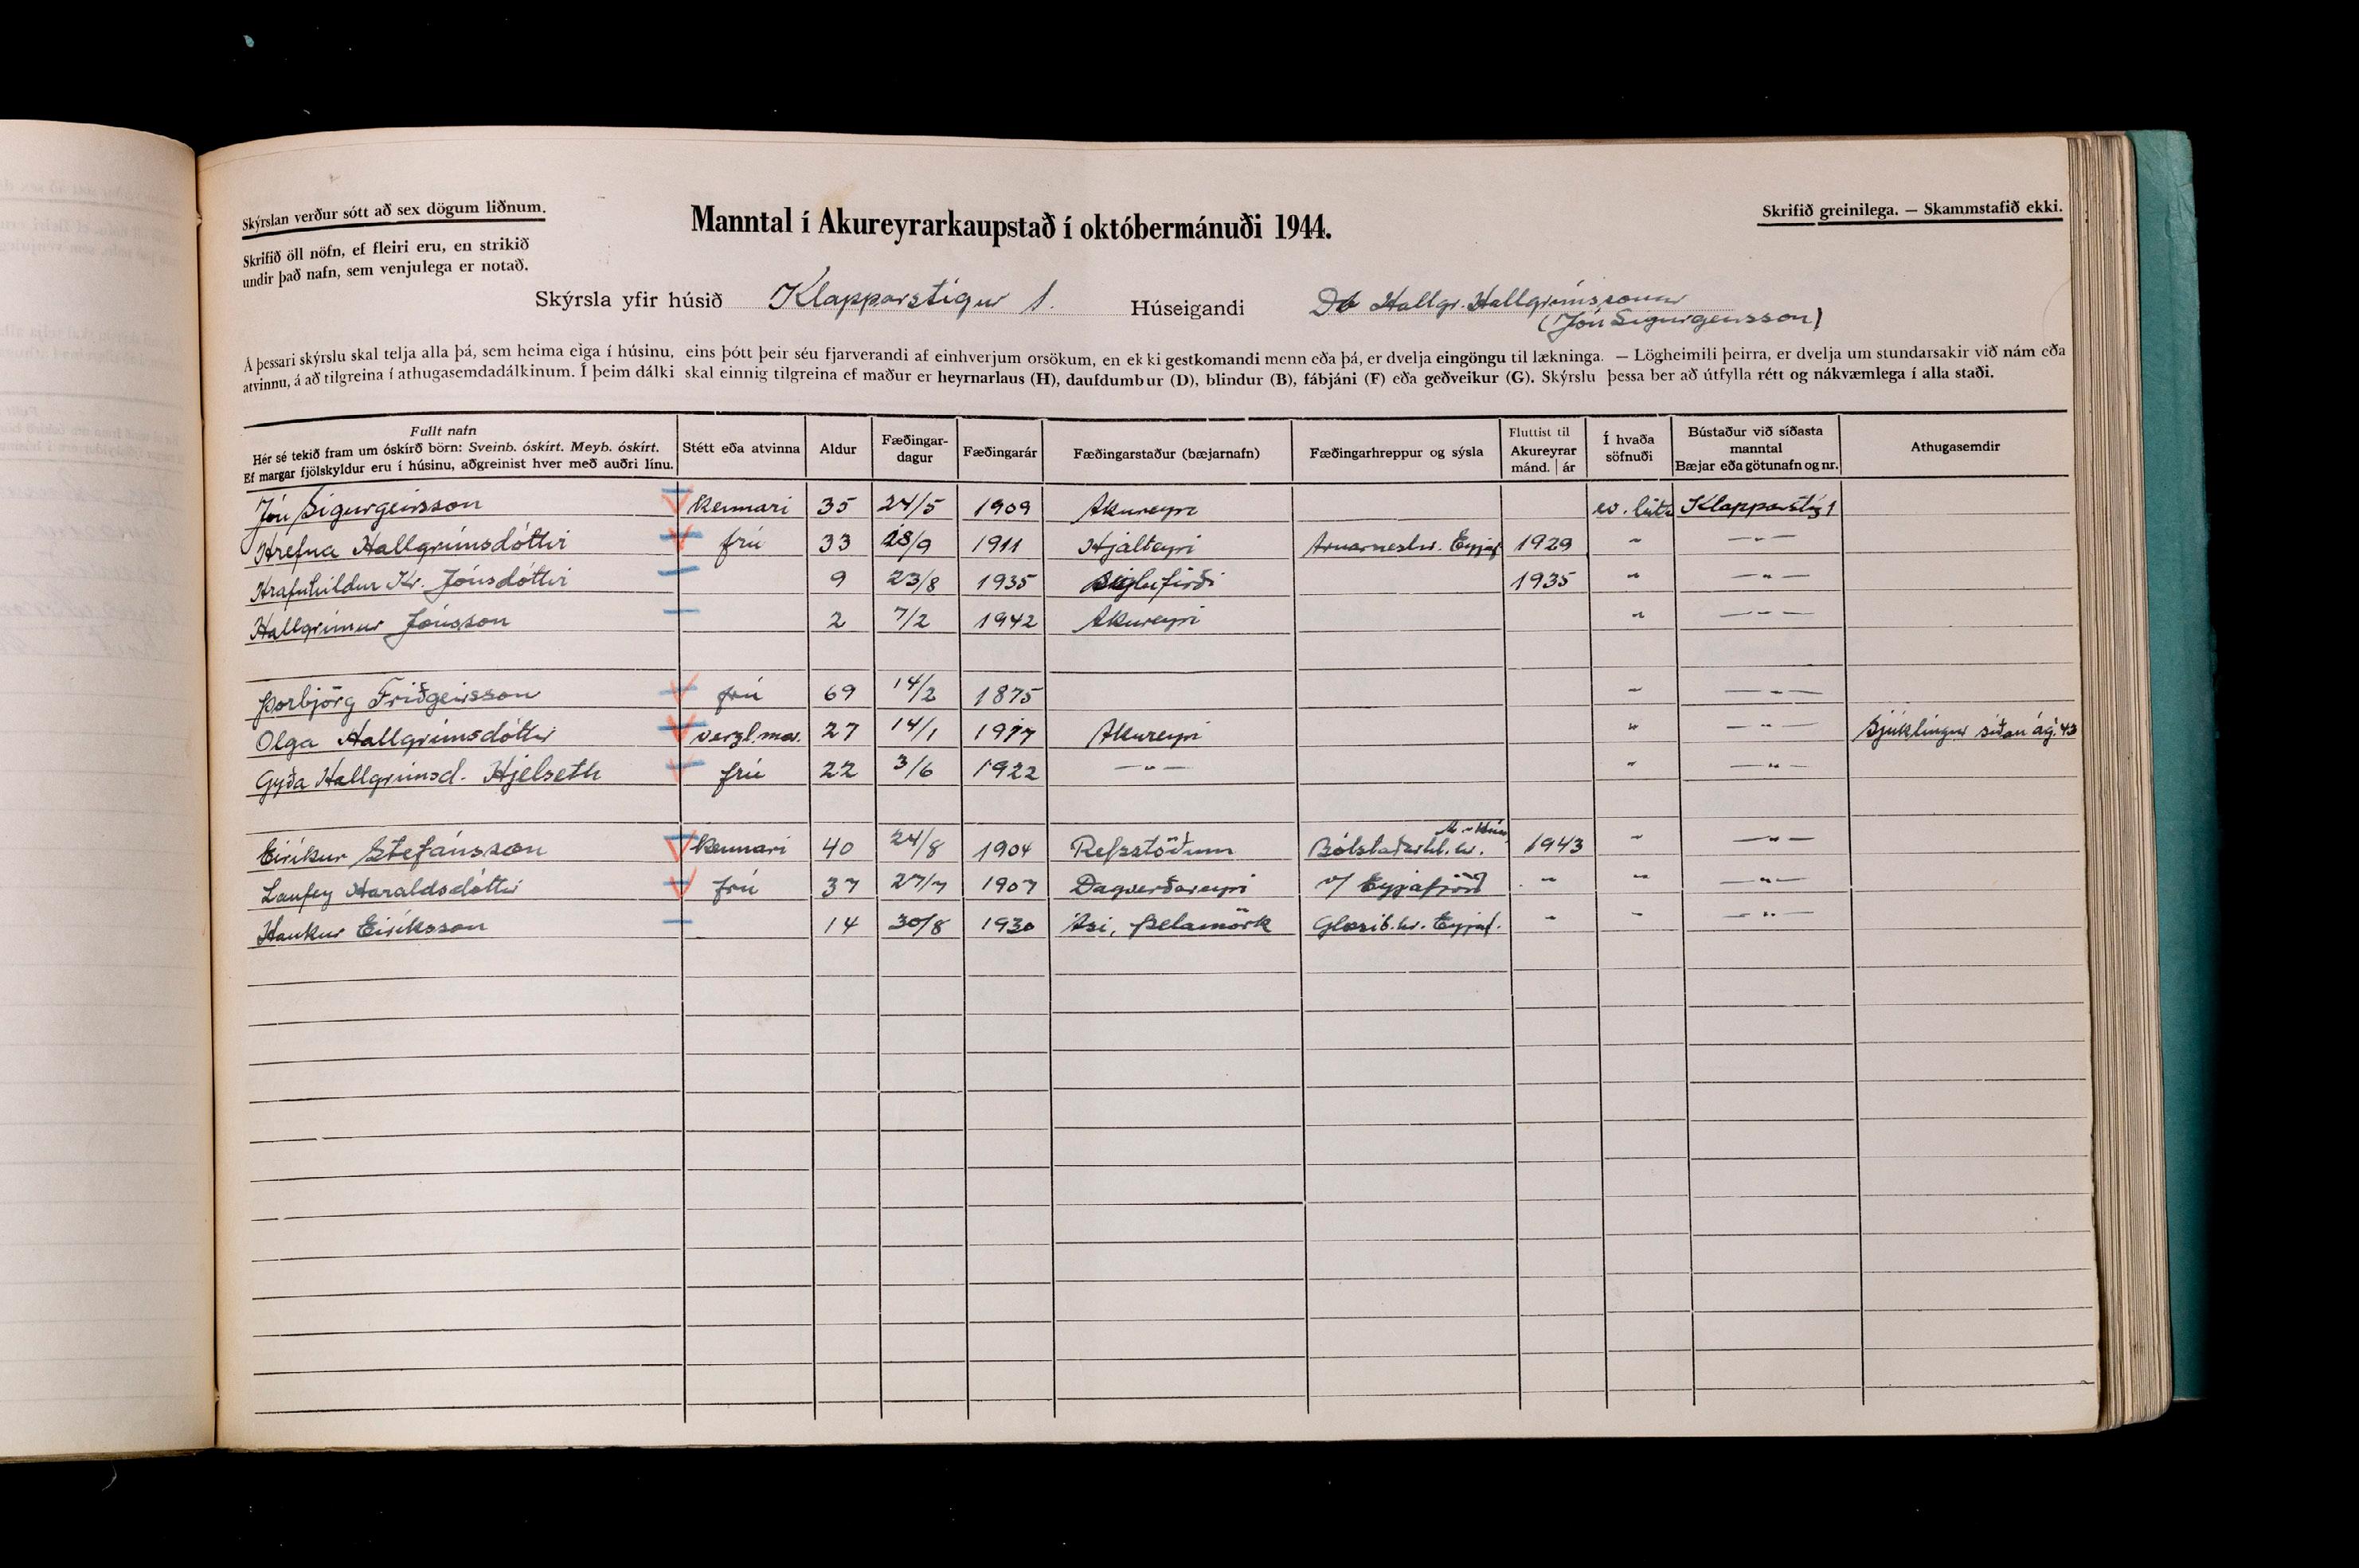 Skýrslan verður sótt að sex dögum liðnum.
Skrifið öll nöfn, ef fleiri eru, en strikið
undir það nafn, sem venjulega er notað.
Manntal í Akureyrarkaupstað í októbermánuði 1944.
Skrifið greinilega. — Skammstafið ekki.
Skýrsla yfir húsið Klapparstígur 1. Húseigandi Db Hallgr. Hallgrímssonar
(Jón Sigurgeirsson)
Á þessari skýrslu skal telja alla þá, sem heima eiga í húsinu, eins þótt þeir séu fjarverandi af einhverjum orsökum, en ekki gestkomandi menn eða þá, er dvelja eingöngu til lækninga. — Lögheimili þeirra, er dvelja um stundarsakir við nám eða
atvinnu, á að tilgreina í athugasemdadálkinum. Í þeim dálki skal einnig tilgreina ef maður er heyrnarlaus (H), daufdumbur (D), blindur (B), fábjáni (F) eða geðveikur (G). Skýrslu þessa ber að útfylla rétt og nákvæmlega í alla staði.
Fullt nafn
Hér sé tekið fram um óskírð börn: Sveinb. óskírt. Meyb. óskírt.
Ef margar fjölskyldur eru í húsinu, aðgreinist hver með auðri línu.
Stétt eða atvinna
Aldur
Fæðingar-
dagur
Fæðingarár
Fæðingarstaður (bæjarnafn)
Fæðingarhreppur og sýsla
Fluttist til
Akureyrar
mánd. | ár
Í hvaða
söfnuði
Bústaður við síðasta
manntal
Bæjar eða götunafn og nr.
Athugasemdir
Jón Sigurgeirsson kennari 35 24/5 1909 Akureyri ev. lút. Klapparstíg 1
Hrefna Hallgrímsdóttir frú 33 28/9 1911 Hjalteyri Arnarneshr. Eyjaf 1929 " — " —
Hrafnhildur Kr. Jónsdóttir 9 23/8 1935 Siglufirði 1935 " — " —
Hallgrímur Jónsson 2 7/2 1942 Akureyri " — " —
Þorbjörg Friðgeirsson frú 69 14/2 1875 " — " —
Olga Hallgrímsdóttir verzl.mær. 27 14/1 1917 Akureyri " — " — Sjúklingur síðan ág. 43
Gyða Hallgrímsd. Hjelseth frú 22 3/6 1922 — " — " — " —
Eiríkur Stefánsson kennari 40 24/8 1904 Refsstöðum Bólstaðarhl. hr. A.-Hún 1943 " — " —
Laufey Haraldsdóttir frú 37 27/7 1907 Dagverðareyri v/ Eyjafjörð " " — " —
Haukur Eiríksson 14 30/8 1930 Ási, Þelamörk Glæsib.hr. Eyjaf. " " — " —